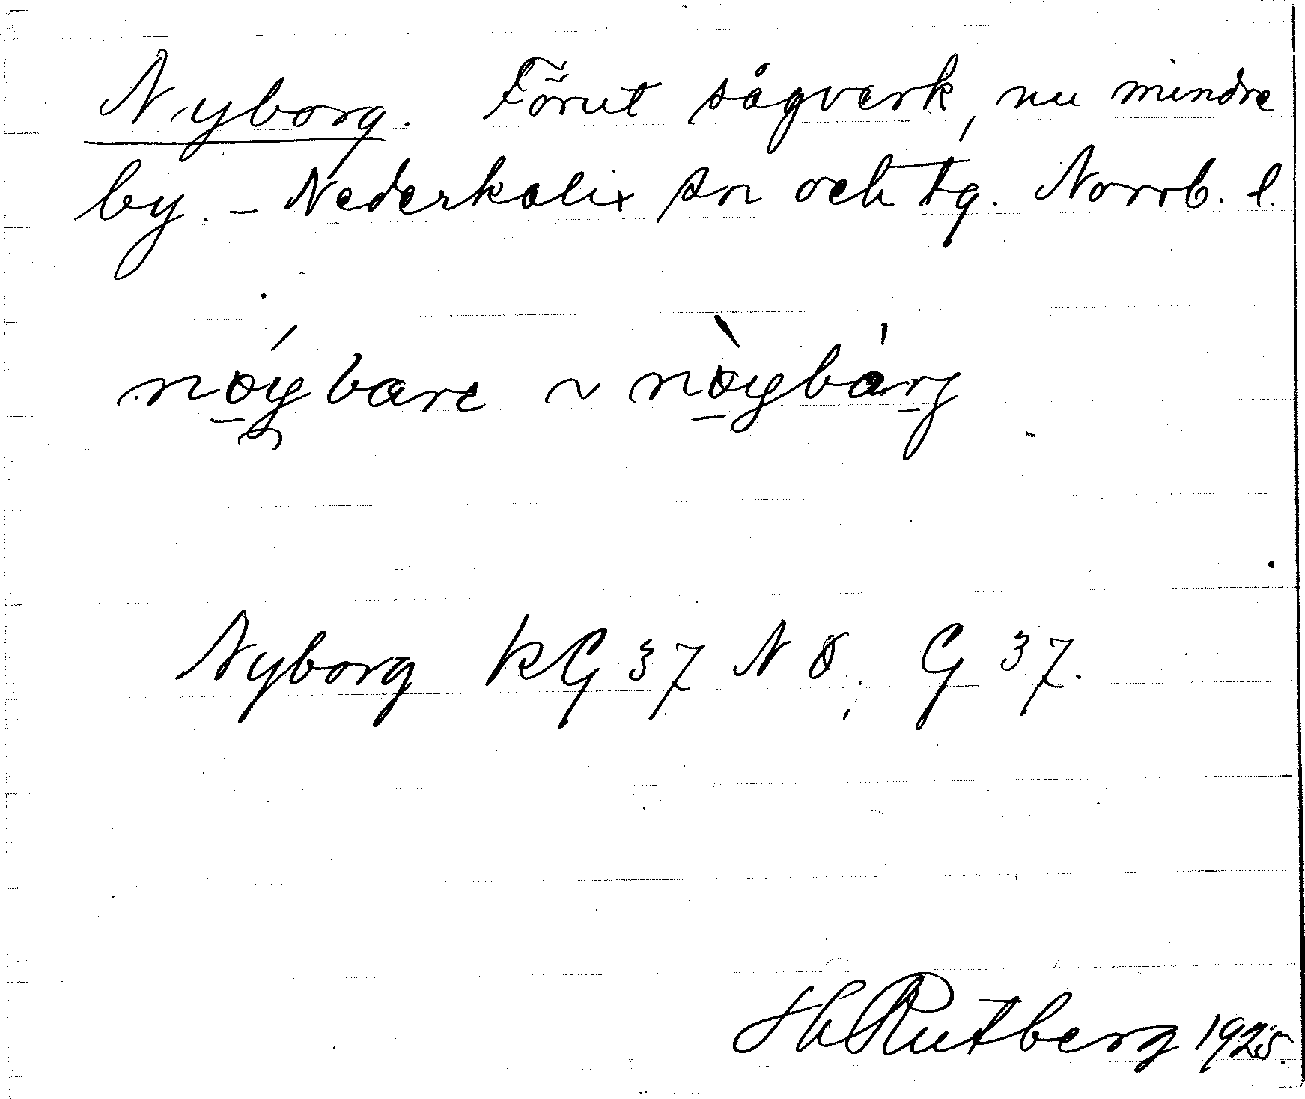 Nyborg. Förut sågverk, nu mindre
by. - Nederkalix sn och tg. Norrb. l.
nøybare ~ nøybarg
Nyborg KG 37 N ö; G 37.
Hb Rutberg 1925.